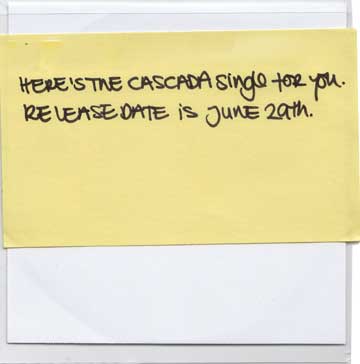 HERE'S THE CASCADA single for you.
RELEASE DATE is JUNE 29th.